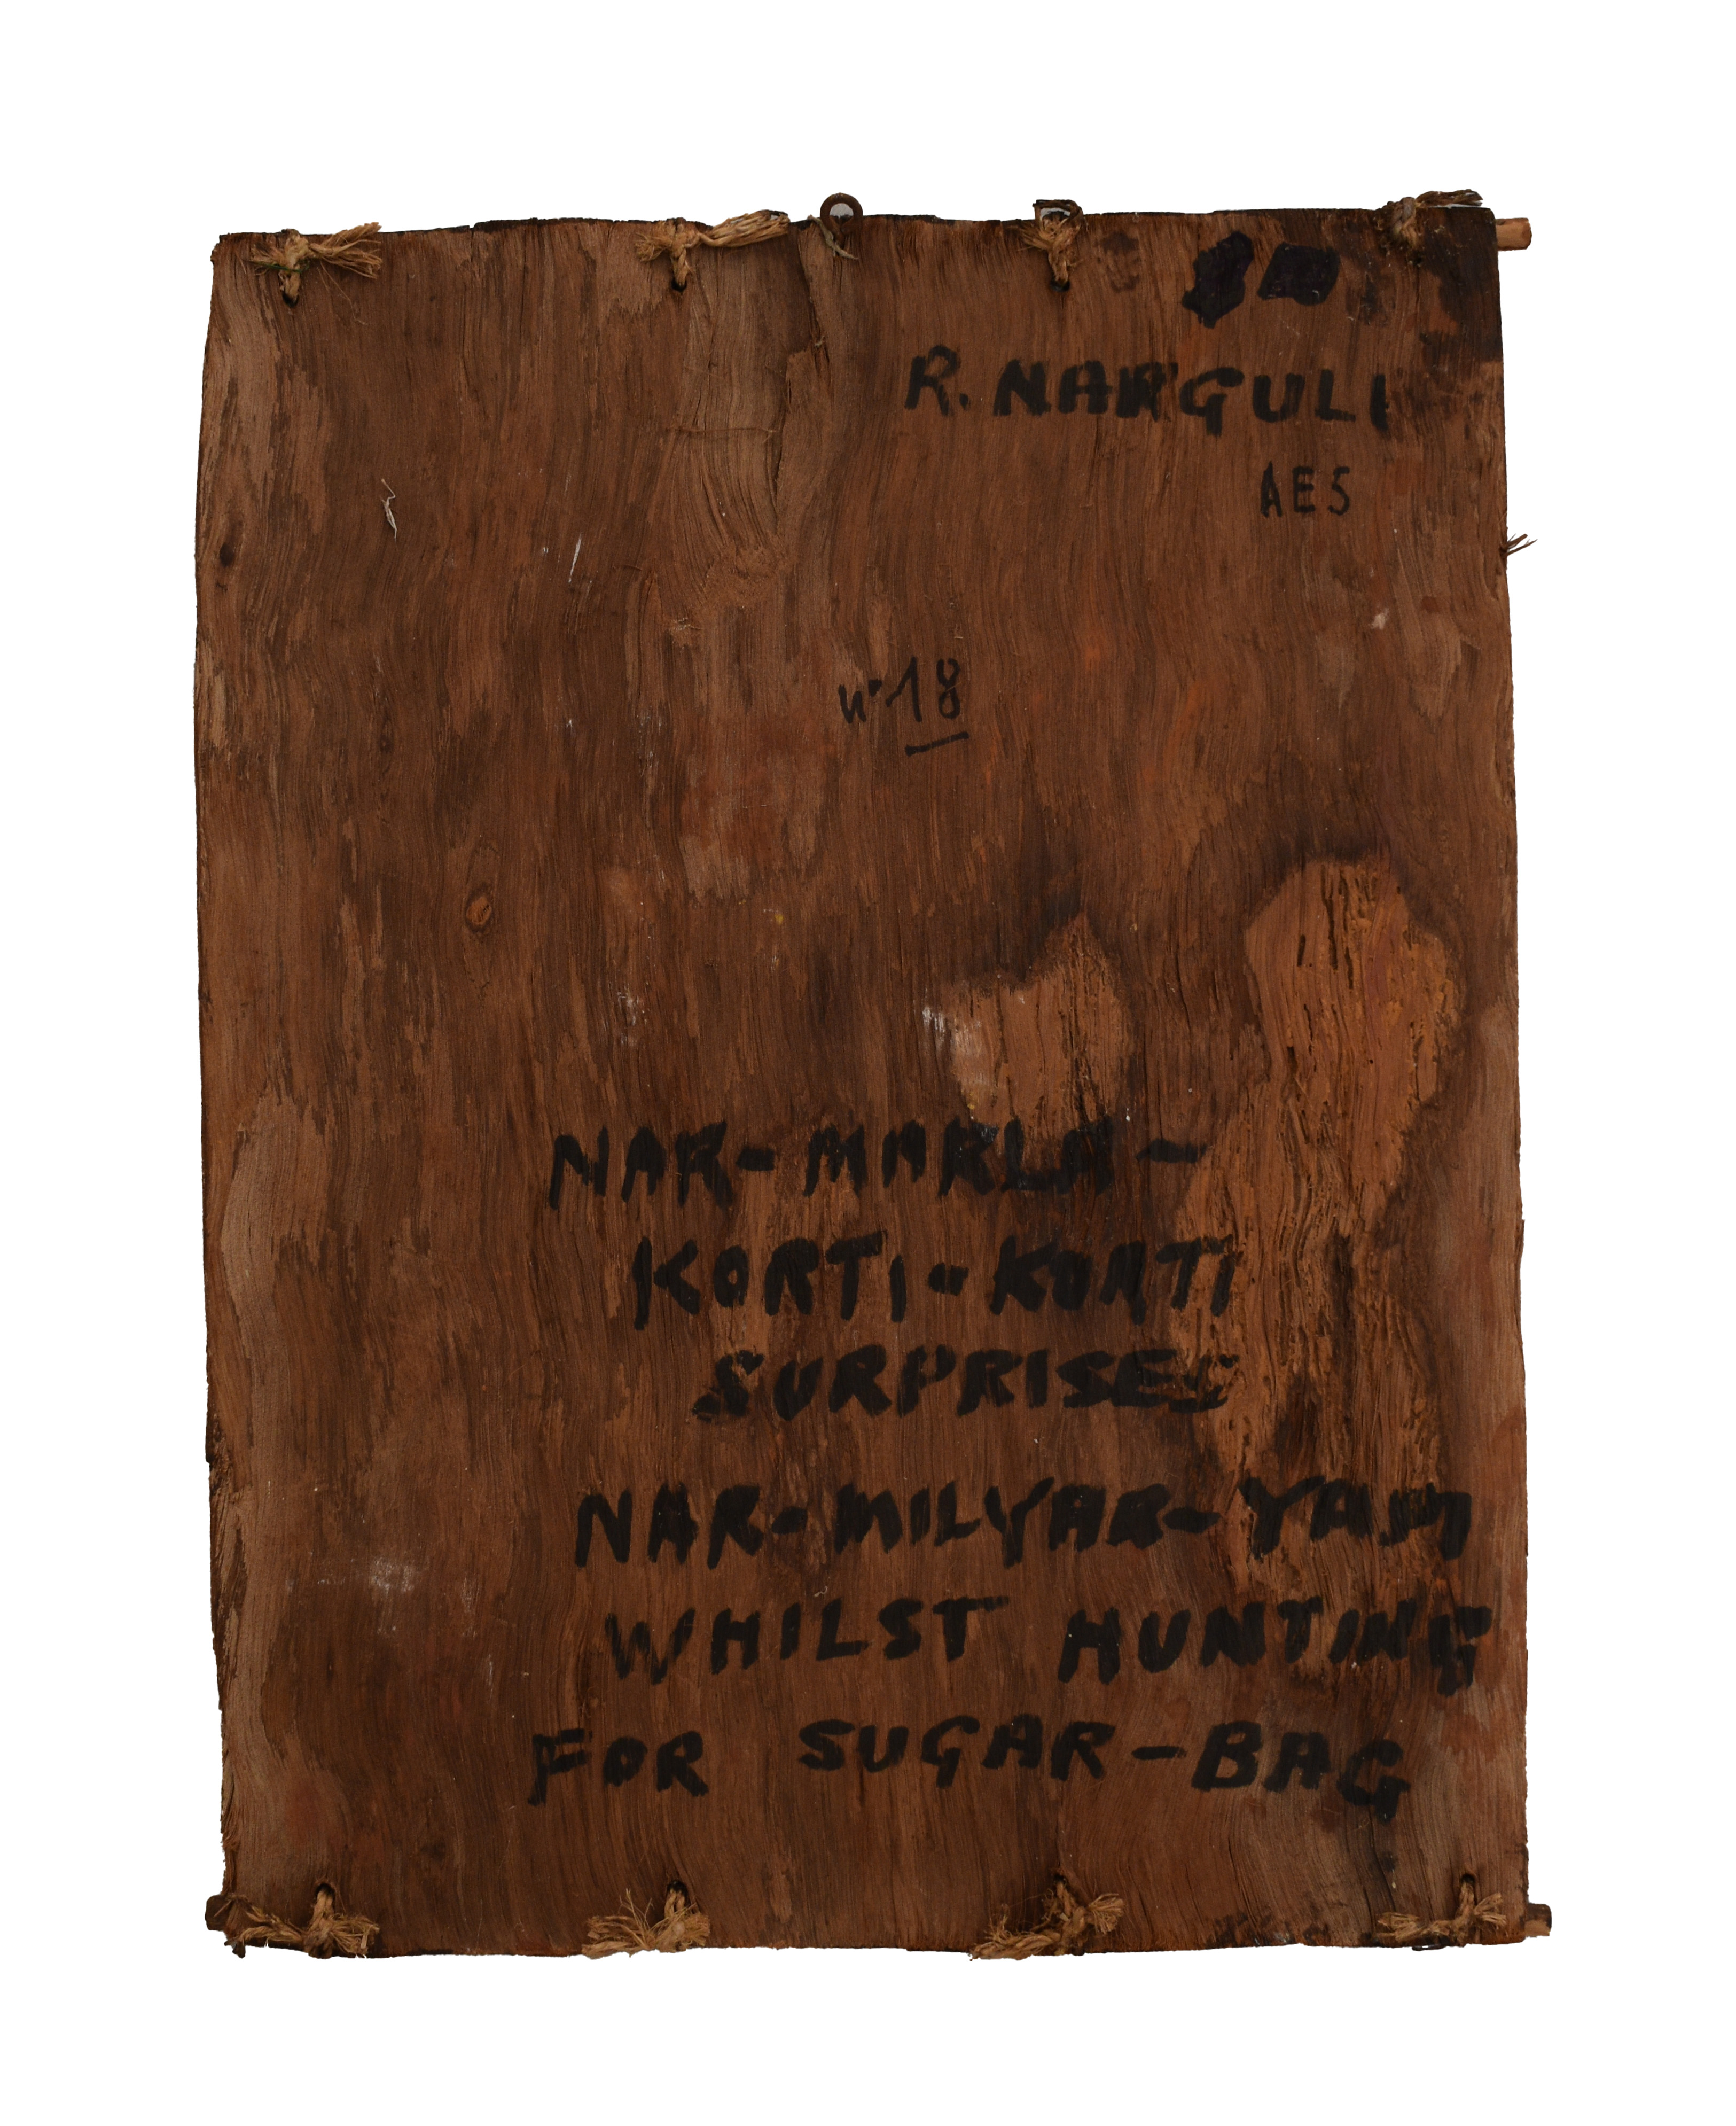 R. NARGULI
AE5
n° 18
NAR-MARLA-
KORTI-KORTI
SURPRISES
NAR-MILYAR-YAM
WHILST HUNTING
FOR SUGAR-BAG